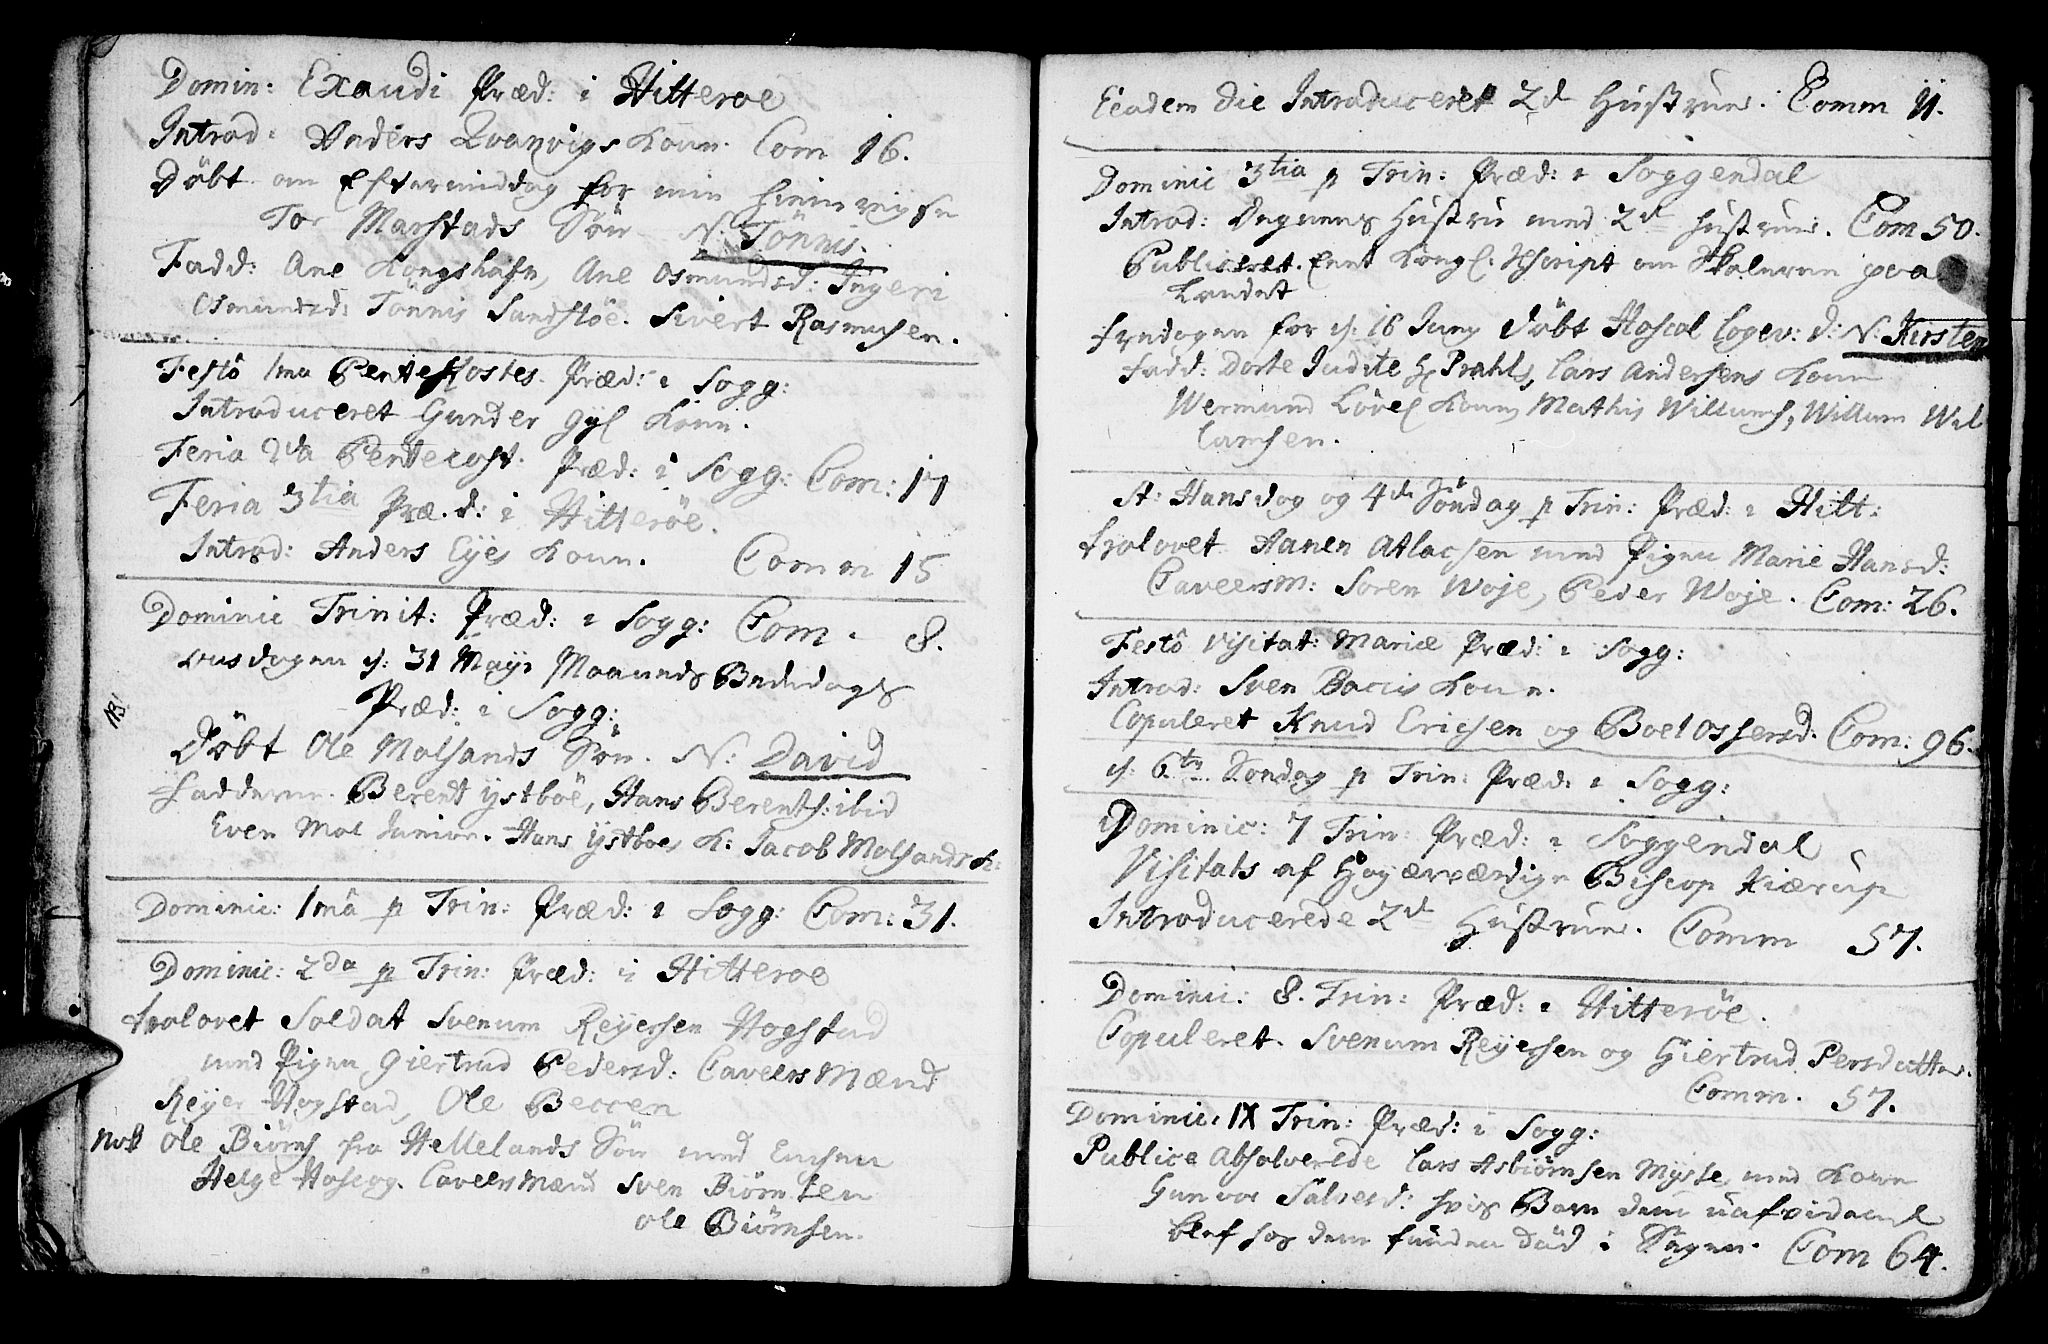 Domin: Exaudi Præd: i Hitteroe
Introd: Anders Qvanvigs Koun. Com 16.
Döbt om Eftermiddag for min hiemreyse
Tor Marstads Sön N. Tönnis.
Fadd: Ane Kongshafn, Ane Osmundsd: Ingeri
Osmundsd: Tönnis Sandstöe. Sivert Rasmusen.
Festô 1ma Pentekostes. Præd: i Sogg:
Introduceret Gunder Gyl Koun.
Feria 2da Pentecost. Præd: i Sogg: Com: 17
Feria 3tia Præd: i Hitteröe.
Introd: Anders Eyes Koun. Comm 15
Dominic Trinit: Præd: i Sogg: Com. 8.
d: 31 Maji Maaneds Bededags
Præd: i Sogg:
Döbt Ole Molsands Sön. N: David
Faddere. Berent ystböe, Hans Berents: ibid
Even Mol Junior. Hans ystboes K: Jacob Molsands K:
Dominic: 1mâ p Trin: Præd: i Sogg: Com: 31.
Dominic: 2da p Trin: Præd: i Hitteroe
trolovet Soldat Svenum Reyersen Hogstad
med Pigen Giertrud Pedersd: Caveers Mænd
Reyer Hogstad, Ole Beccen
nok Ole Biörns fra Hellelands Sön med
Helge Hoscog. Caveers Mænd Sven Biörnsen
Ole Biörnsen.
Eeadem die Introduceret 2de Hustruer. Comm 11.
Dominic 3tia p Trin: Præd: i Soggendal
Introd: Degnens Hustru med 2de hustruer. Com 50.
Publiceret. Kongl. Rescript om Skolerne paa
Landet
fredagen for d: 16 Juny döbt Hoscol Logev: d: N: Kirsten
Fadd: Dorte Judite Hr Prahls, Lars Andersens Koun
Wermund Lövel Koun, Mathis Willums, Willum Wil
lumsen.
St: Hansdag og 4de Söndag p Trin: Præd: i Hitt:
trolovet Aanen Atlacsen med Pigen Marie Hansd:
Caveersm: Soren Woje, Peder Woje. Com: 26.
Festô Visitat: Mariæ Præd: i Sogg:
Introd: Sven Baccis Koun.
Copuleret Knud Ericsen og Boel Ossersd. Com: 96.
d: 6te Söndag p Trin: Præd: i Sogg:
Dominic: 7 Trin: Præd: i Soggendal
Visitats af Høyærværdige Biscop Kiærup
Introducerede 2de Hustruer. Comm 57.
Dominic: 8. Trin: Præd: i Hitteröe.
Copuleret. Svenum Reyersen og Giertrud Persdatter.
Comm. 57.
Dominic: IX Trin: Præd: i Sogg:
Publice Absolverede Lars Asbiörnsen Mysse, med Koun
Gunvor Salversd: hvis Barn dem uafvidende
blef hos dem funden död i Sengen. Com 64.